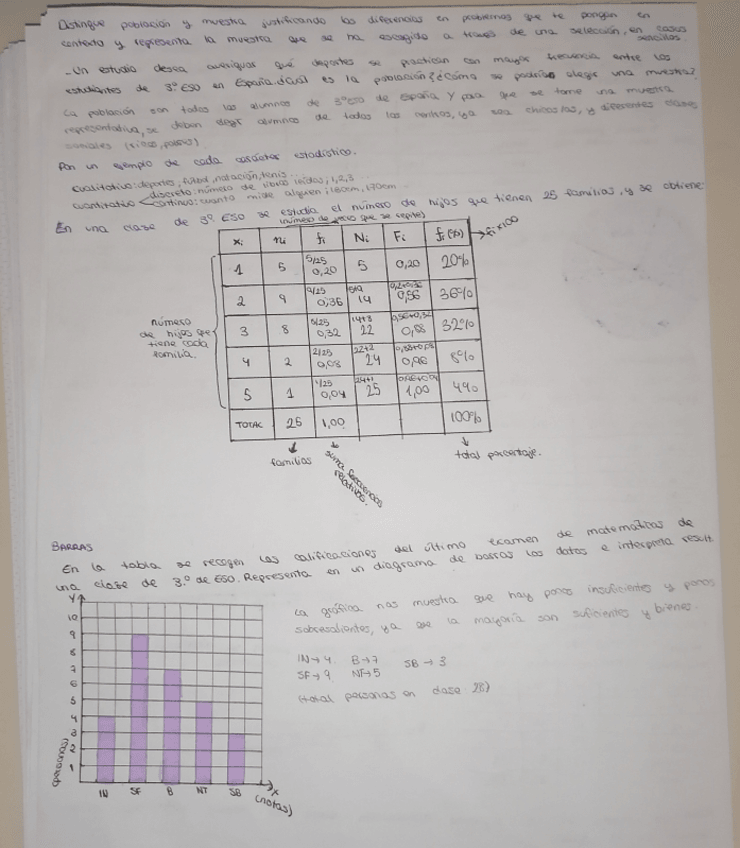 Distingue población y muestra justificando las diferencias en problemas que te pongan en
contexto y representa la muestra que se ha escogido a través de una selección, en casos
sencillos
- Un estudio desea averiguar qué deportes se practican con mayor frecuencia entre los
estudiantes de 3º ESO en España. ¿Cuál es la población? ¿Cómo se podría elegir una muestra?
La población son todos los alumnos de 3º eso de España y para que se tome una muestra
representativa, se deben elegir alumnos de todos los centros, ya sea chicos/as, y diferentes clases
sociales (ricos, pobres)
Pon un ejemplo de cada carácter estadístico.
Cualitativo: deportes, futbol, natación, tenis...
cuantitativo discreto: número de libros leídos, 1, 2, 3
continuo: cuanto mide alguien; 160cm, 170cm
En una clase de 3º ESO se estudia el número de hijos que tienen 25 familias, y se obtiene:
(número de veces que se repite)
xi ni fi Ni Fi fi(%) → fi×100
1 5 5/25 0,20 5 0,20 20%
2 9 9/25 0,36 5+9 14 0,2+0,36 0,56 36%
3 8 8/25 0,32 14+8 22 0,56+0,32 0,88 32%
4 2 2/25 0,08 22+2 24 0,88+0,08 0,96 8%
5 1 1/25 0,04 24+1 25 0,96+0,04 1,00 4%
TOTAL 25 1,00 100%
número
de hijos que
tiene cada
familia.
familias
suma frecuencias
relativas.
total porcentaje.
BARRAS
En la tabla se recogen las calificaciones del último examen de matemáticas de
una clase de 3.º de ESO. Representa en un diagrama de barras los datos e interpreta result.
La gráfica nos muestra que hay pocos insuficientes y pocos
sobresalientes, ya que la mayoría son suficientes y bienes.
IN→4 B→7 SB→3
SF→9 NT→5
(total personas en clase 28)
Y
10
9
8
7
6
5
4
3
2
1
(personas)
IN SF B NT SB
X
(notas)